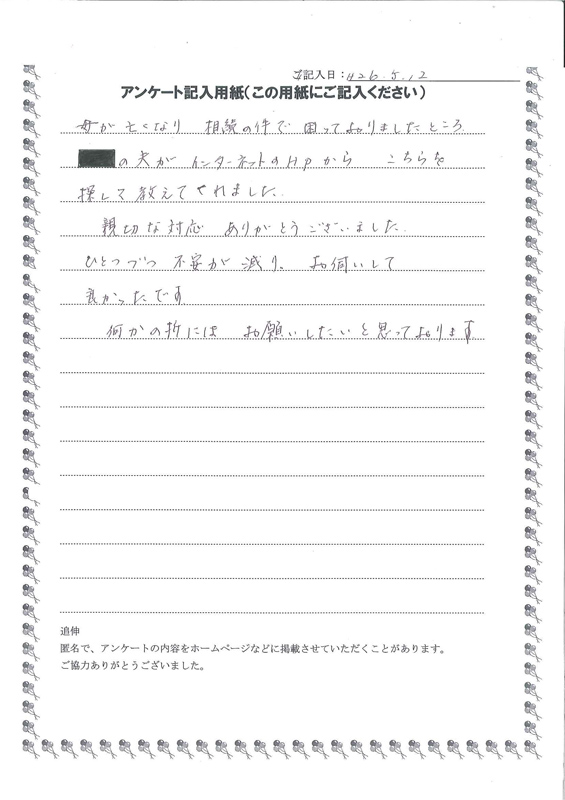 ご記入日：H26.5.12
アンケート記入用紙（この用紙にご記入ください）
母が亡くなり 相続の件で 困っておりましたところ
の夫が インターネットのHPから こちらを
探して教えてくれました.
親切な対応 ありがとうございました.
ひとつづつ 不安が減り、お伺いして
良かったです
何かの折には お願いしたいと思っております
追伸
匿名で、アンケートの内容をホームページなどに掲載させていただくことがあります。
ご協力ありがとうございました。